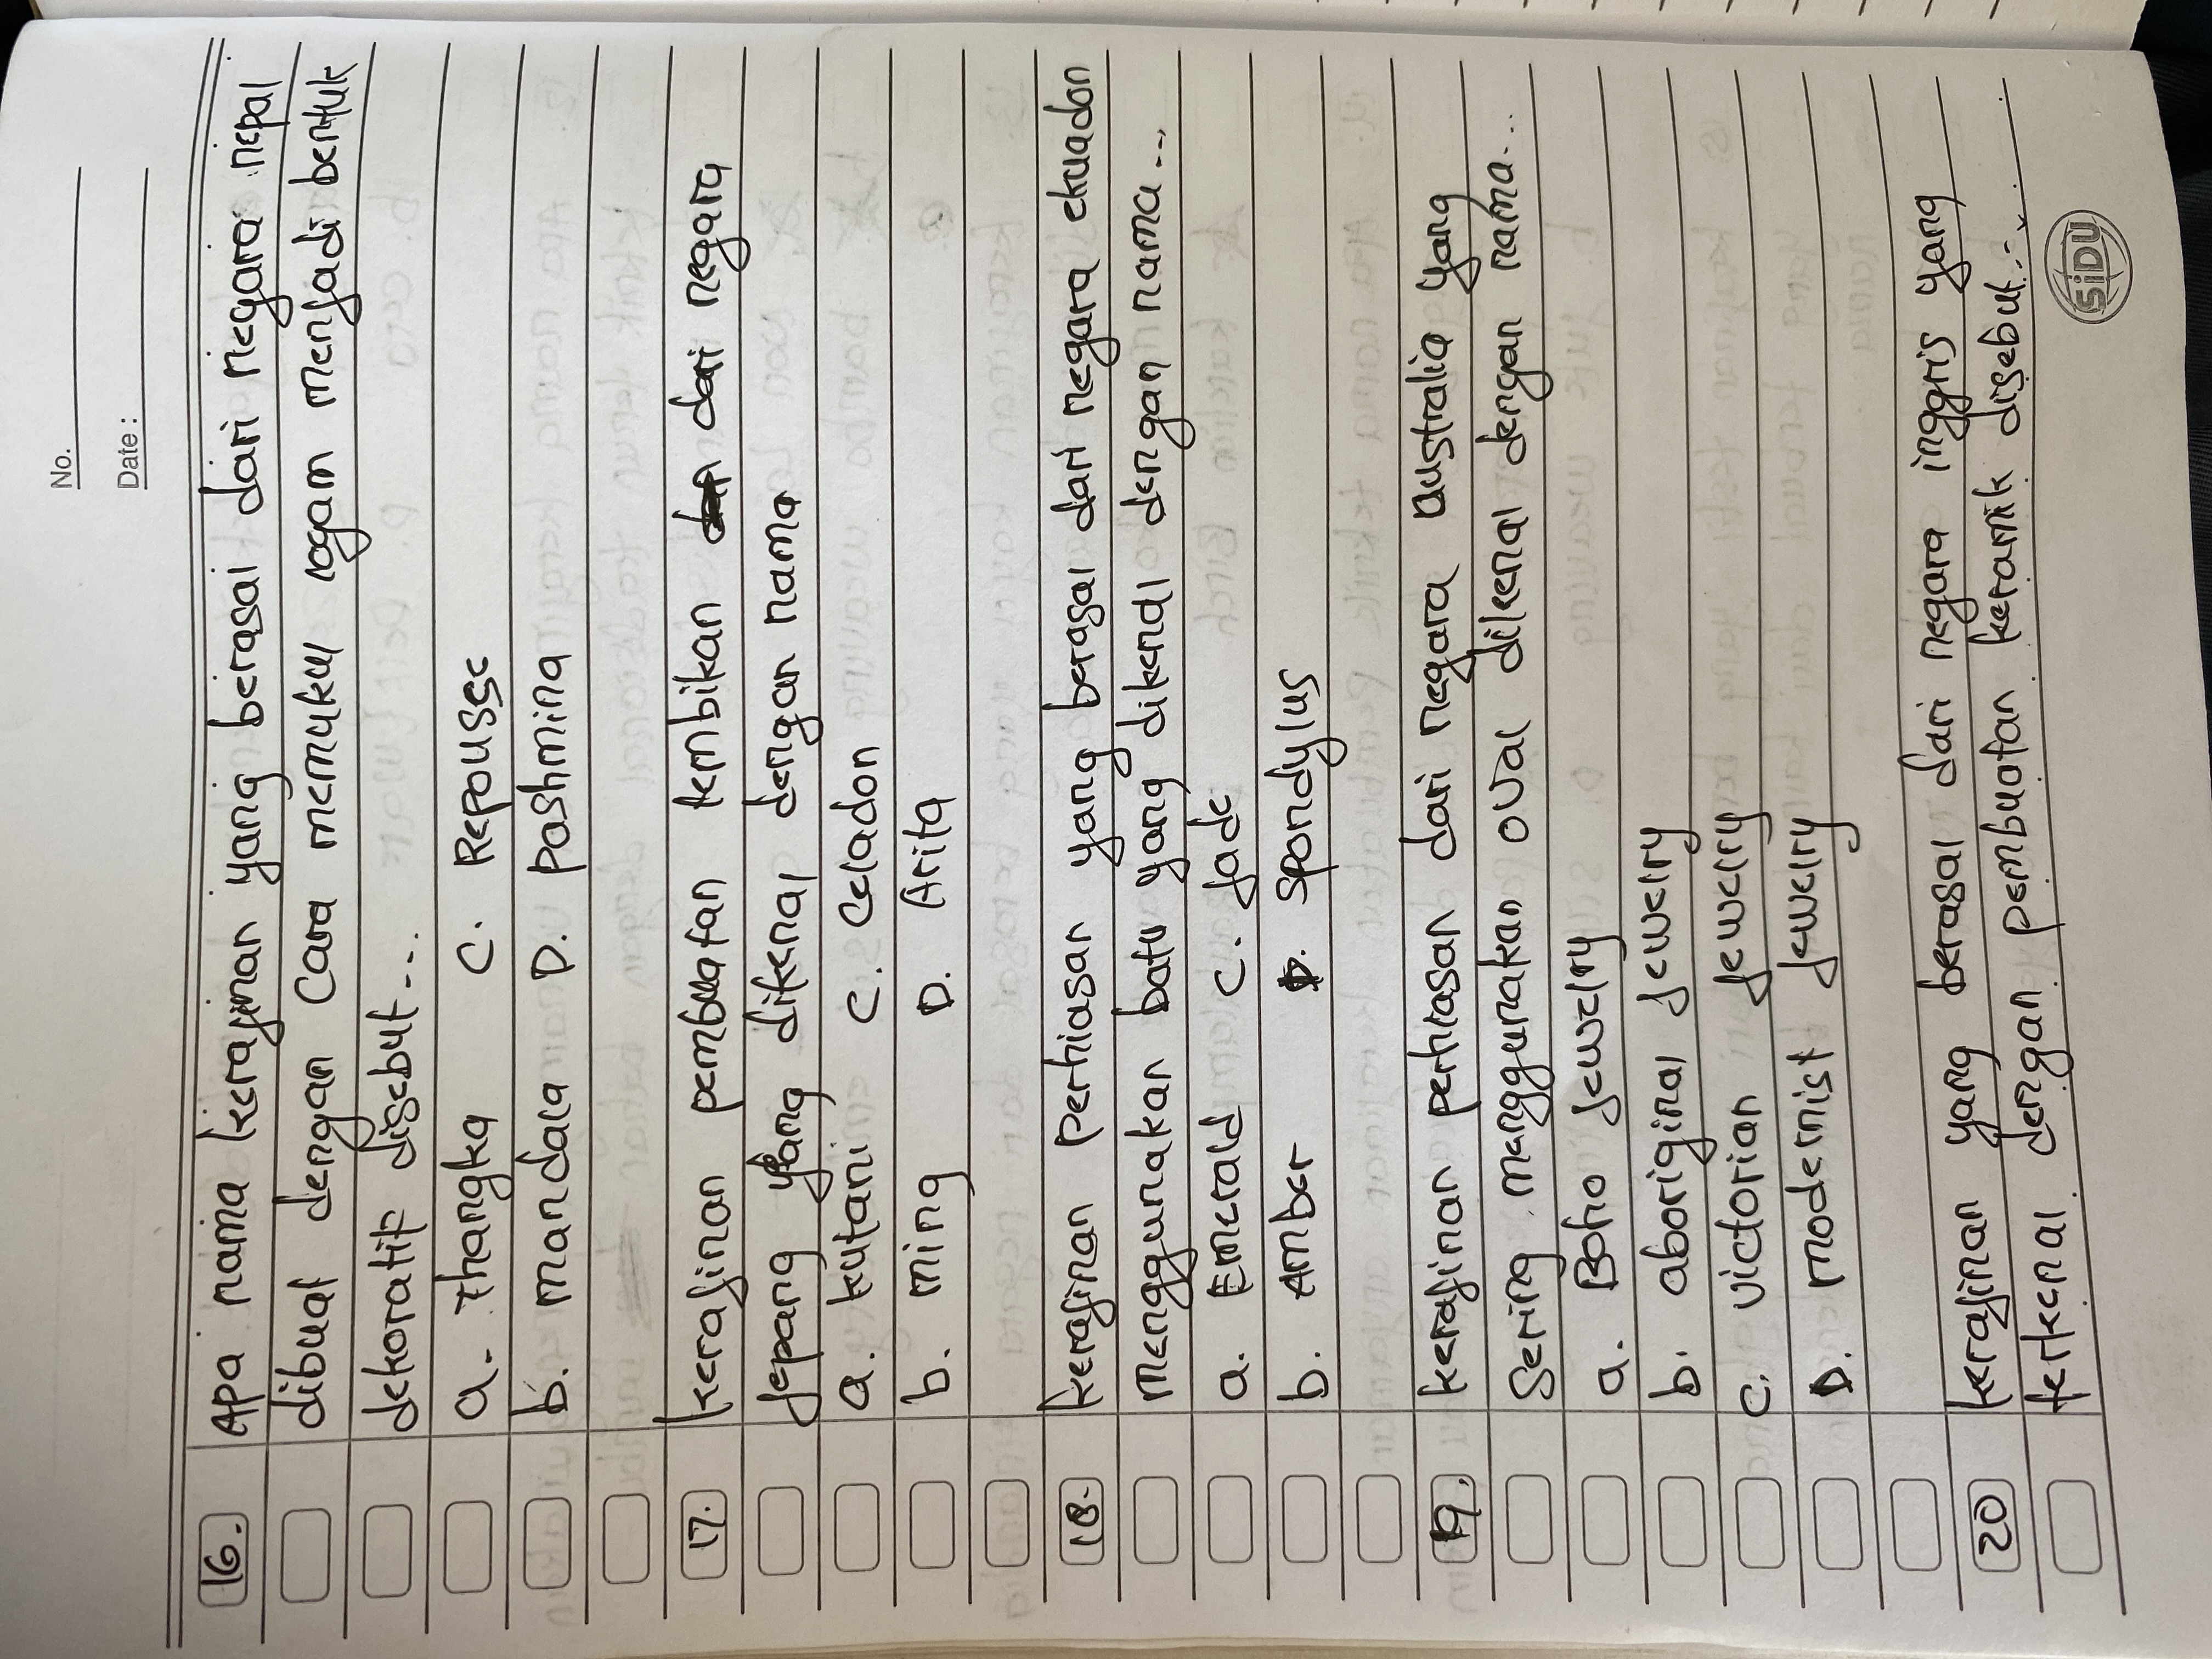 No.
Date :
16. Apa nama kerajinan yang berasal dari negara nepal
dibuat dengan cara memukul logam menjadi bentuk
dekoratif disebut...
a. Thangka C. Repousse
b. mandala D. pashmina
17. kerajinan pembuatan tembikan dari negara
Jepang yang dikenal dengan nama
a. kutani C. Celadon
b. ming D. Arita
18. kerajinan Perhiasan yang berasal dari negara ekuadon
menggunakan batu yang dikenal dengan nama...
a. Emerald C. Jade
b. Amber D. Spondylus
19. kerajinan perhiasan dari negara australia yang
sering menggunakan oval dikenal dengan nama...
a. Boho Jewelry
b. aboriginal Jewelry
C. victorian Jewelry
D. modernist Jewelry
20 kerajinan yang berasal dari negara inggris yang
terkenal dengan pembuatan keramik disebut...
SiDU